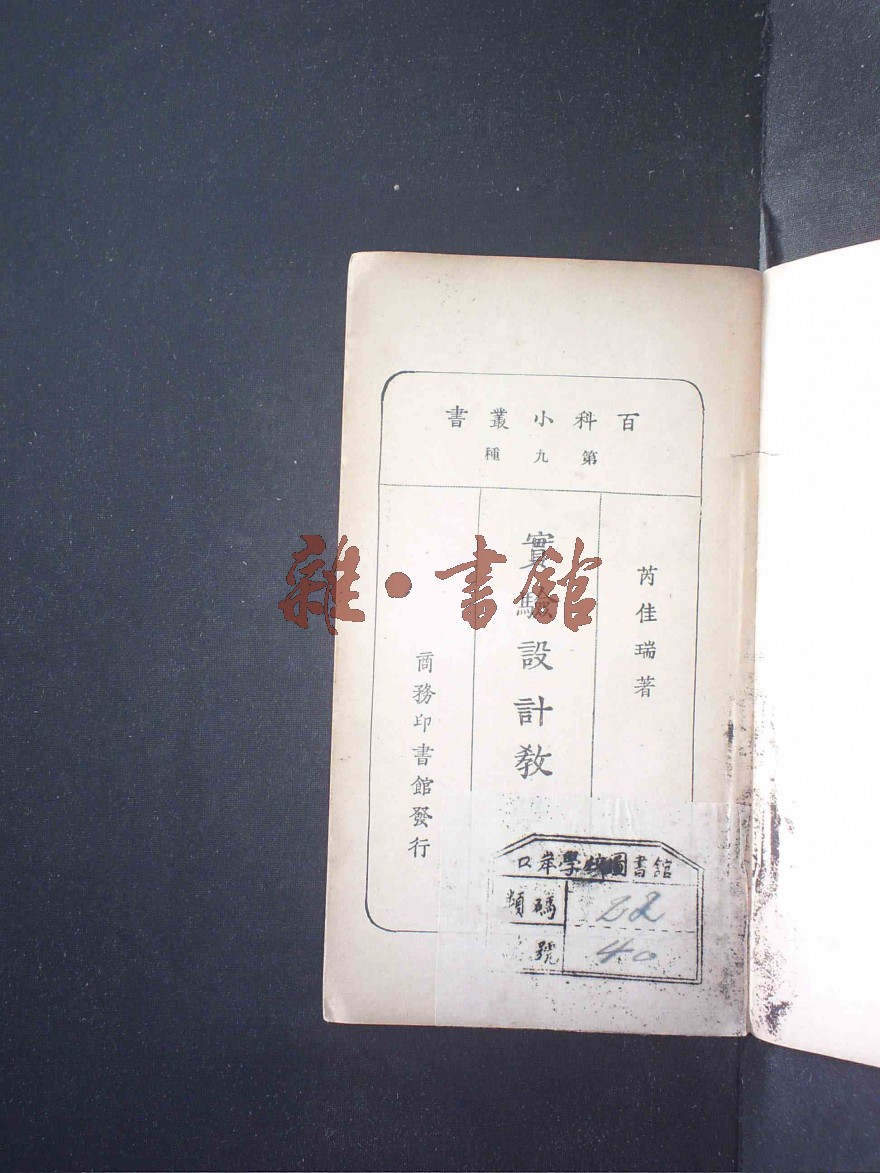 百科小叢書
第九種
芮佳瑞著
實驗設計教
商務印書館發行
雜·書館
口岸學校圖書館
類碼 22
號 40